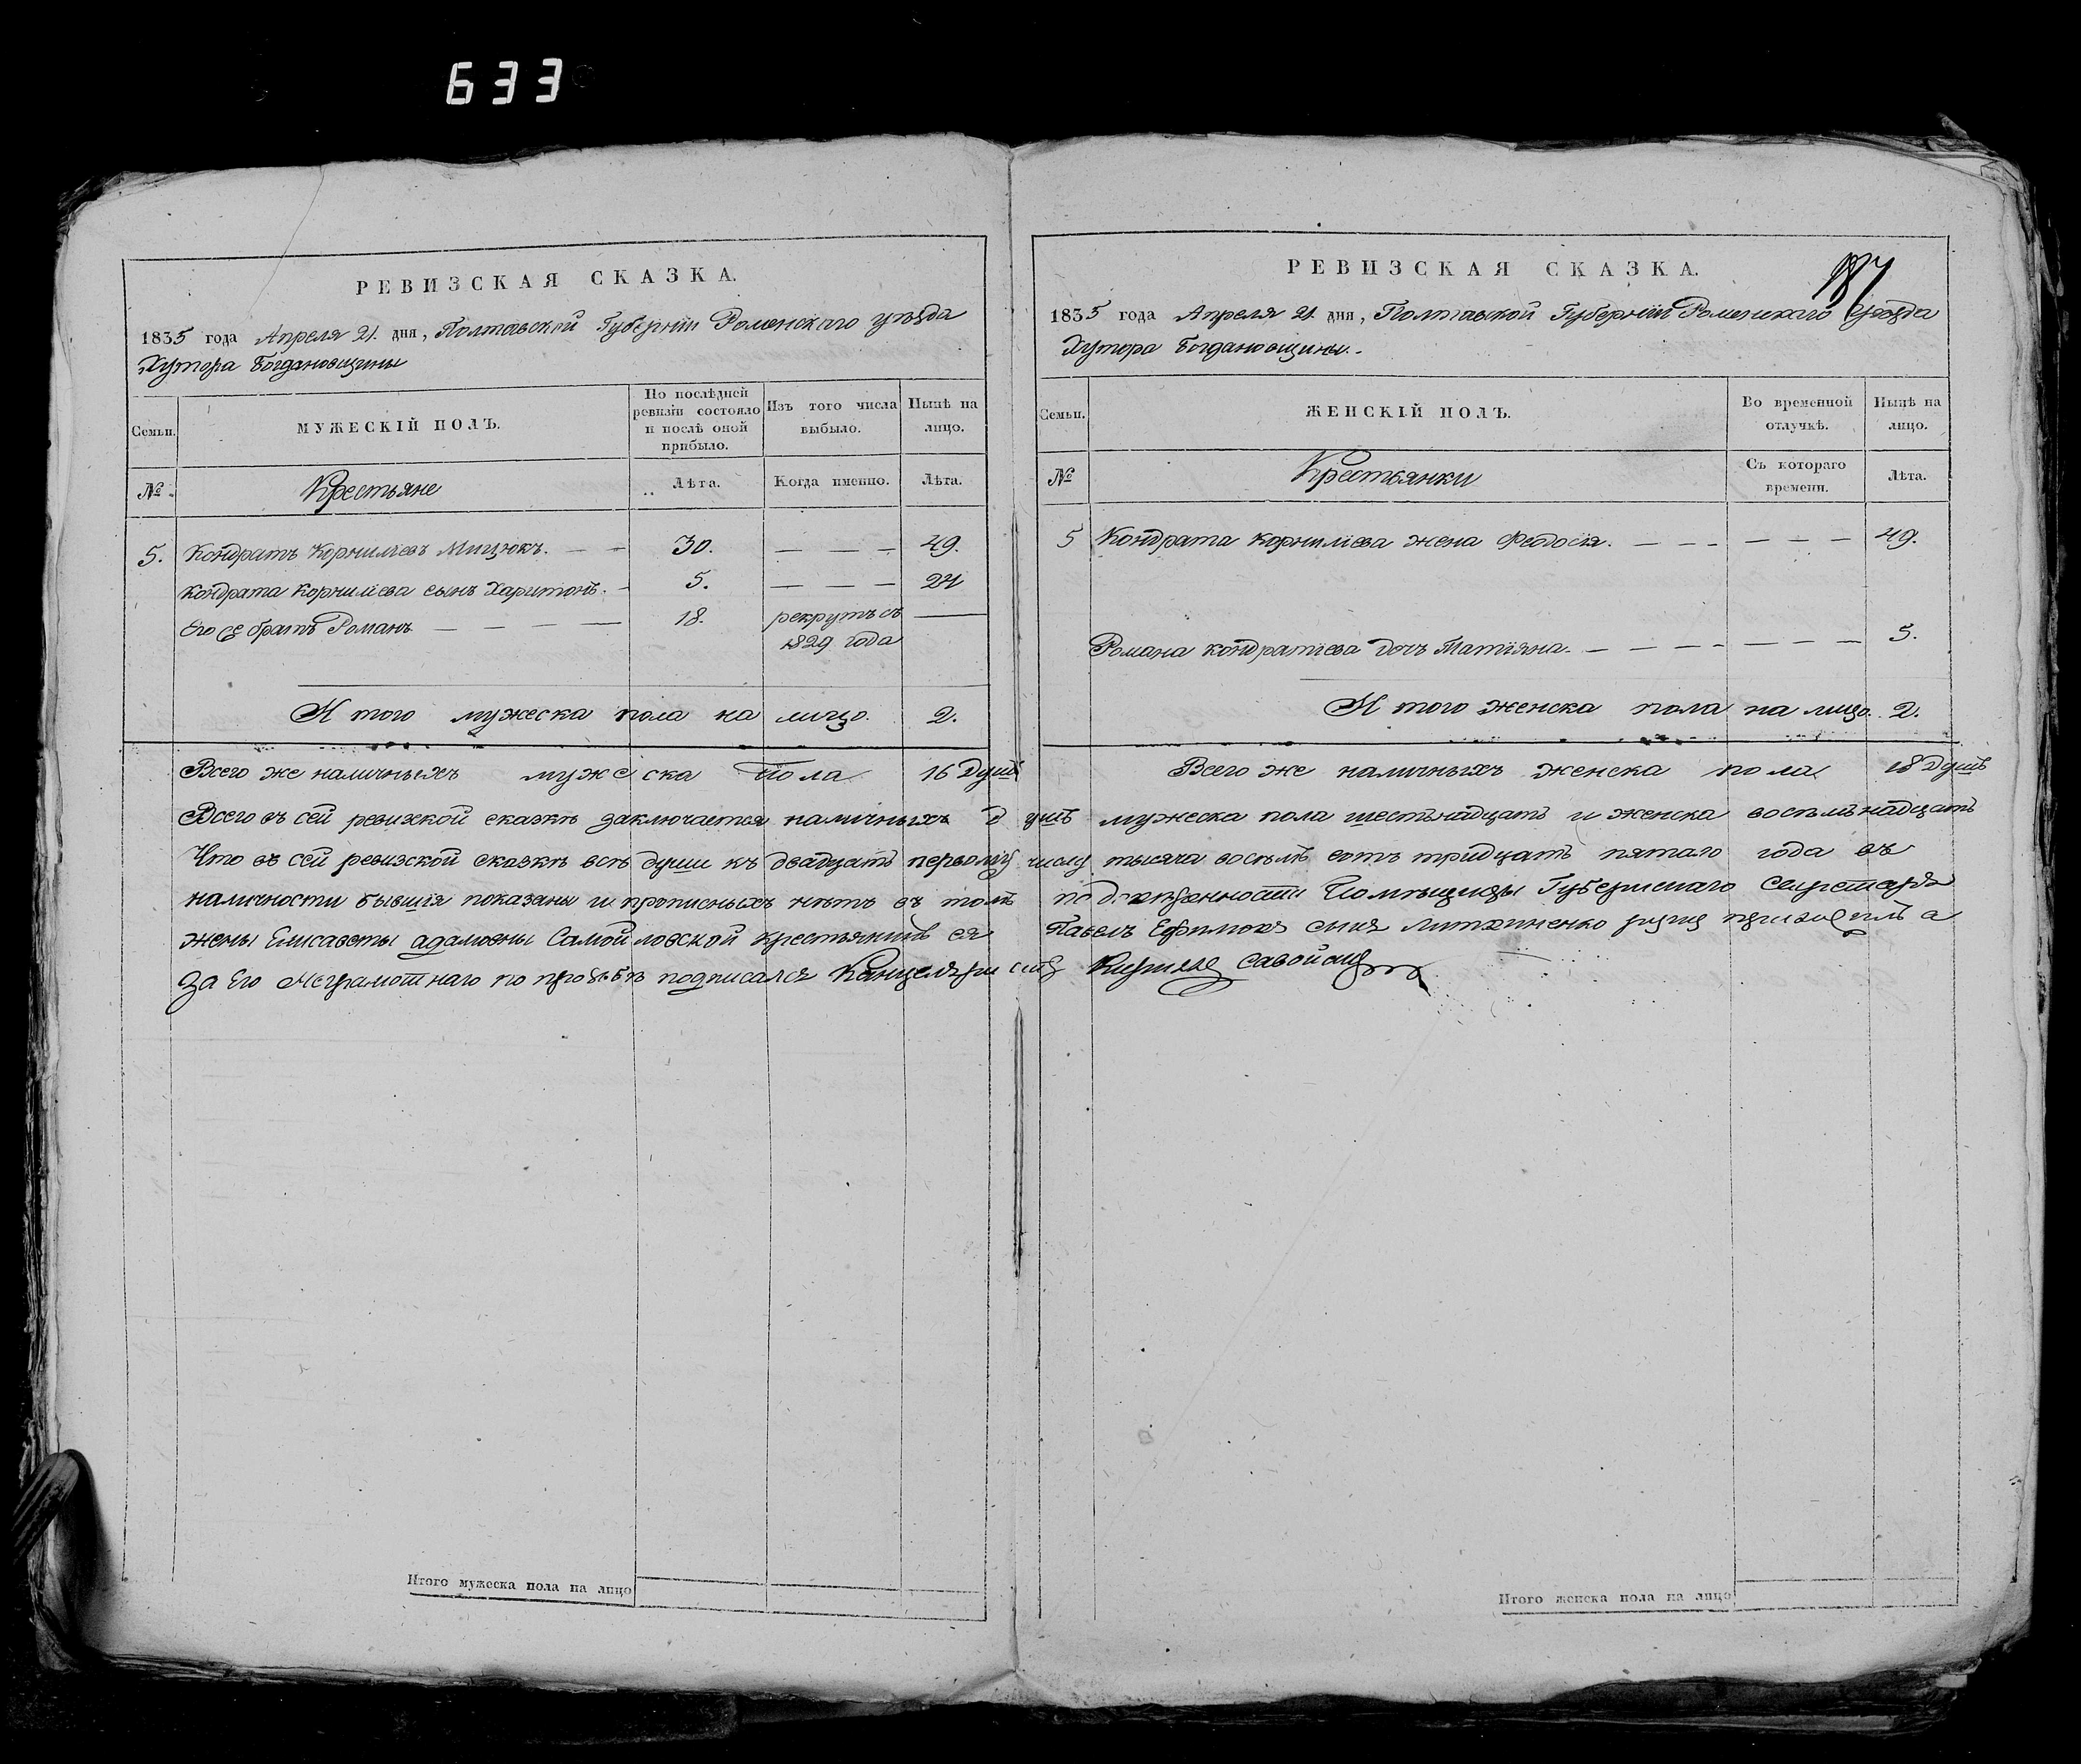 633
РЕВИЗСКАЯ СКАЗКА.
1835 года Апреля 21. дня, Полтавской Губернiи Роменскаго уѣзда
Хутора Богдановщины
Семьи.
МУЖЕСКIЙ ПОЛЪ.
По послѣдней ревизiи состояло и послѣ оной прибыло.
Изъ того числа выбыло.
Нынѣ на лицо.
№
Крестьяне
Лѣта.
Когда именно.
Лѣта.
5. Кондратъ Корнилiевъ Мицюкъ. 30. 49.
Кондрата Корнилiева сынъ Харитонъ. 5. 24
Его же братъ Романъ 18. рекрутъ съ
1829 года
И того мужеска пола на лицо. 2.
Всего же наличныхъ мужеска пола 16 Душъ
РЕВИЗСКАЯ СКАЗКА.
187
1835 года Апреля 21. дня, Полтавской Губернiи Роменскаго Уѣзда
Хутора Богдановщины.
Семьи.
ЖЕНСКIЙ ПОЛЪ.
Во временной отлучкѣ.
Нынѣ на лицо.
№
Крестьянки
Съ котораго времени.
Лѣта.
5 Кондрата Корнилiева жена Федосiя. 49.
Романа Кондратiева дочъ Татiяна. 5.
И того женска пола на лицо. 2.
Всего же наличныхъ женска пола 18 Душъ
Всего въ сей ревизкой сказкѣ заключается наличныхъ душъ мужеска пола шестьнадцать и женска восемьнадцать
Что въ сей ревизской сказкѣ всѣ души къ двадцать первому числу тысяча восемь сотъ тридцать пятаго года въ
наличности бывшiя показаны и прописныхъ нѣтъ въ томъ по довѣренности Помѣщицы Губернскаго Секретаря
жены Елисаветы Адамовны Самойловской крестьянинъ ея Павелъ Ефимовъ сынъ Литвиненко руку приложилъ а
За Его Неграмотнаго по прозьбѣ подписался Канцеляристъ
Итого мужеска пола на лицо
Итого женска пола на лицо